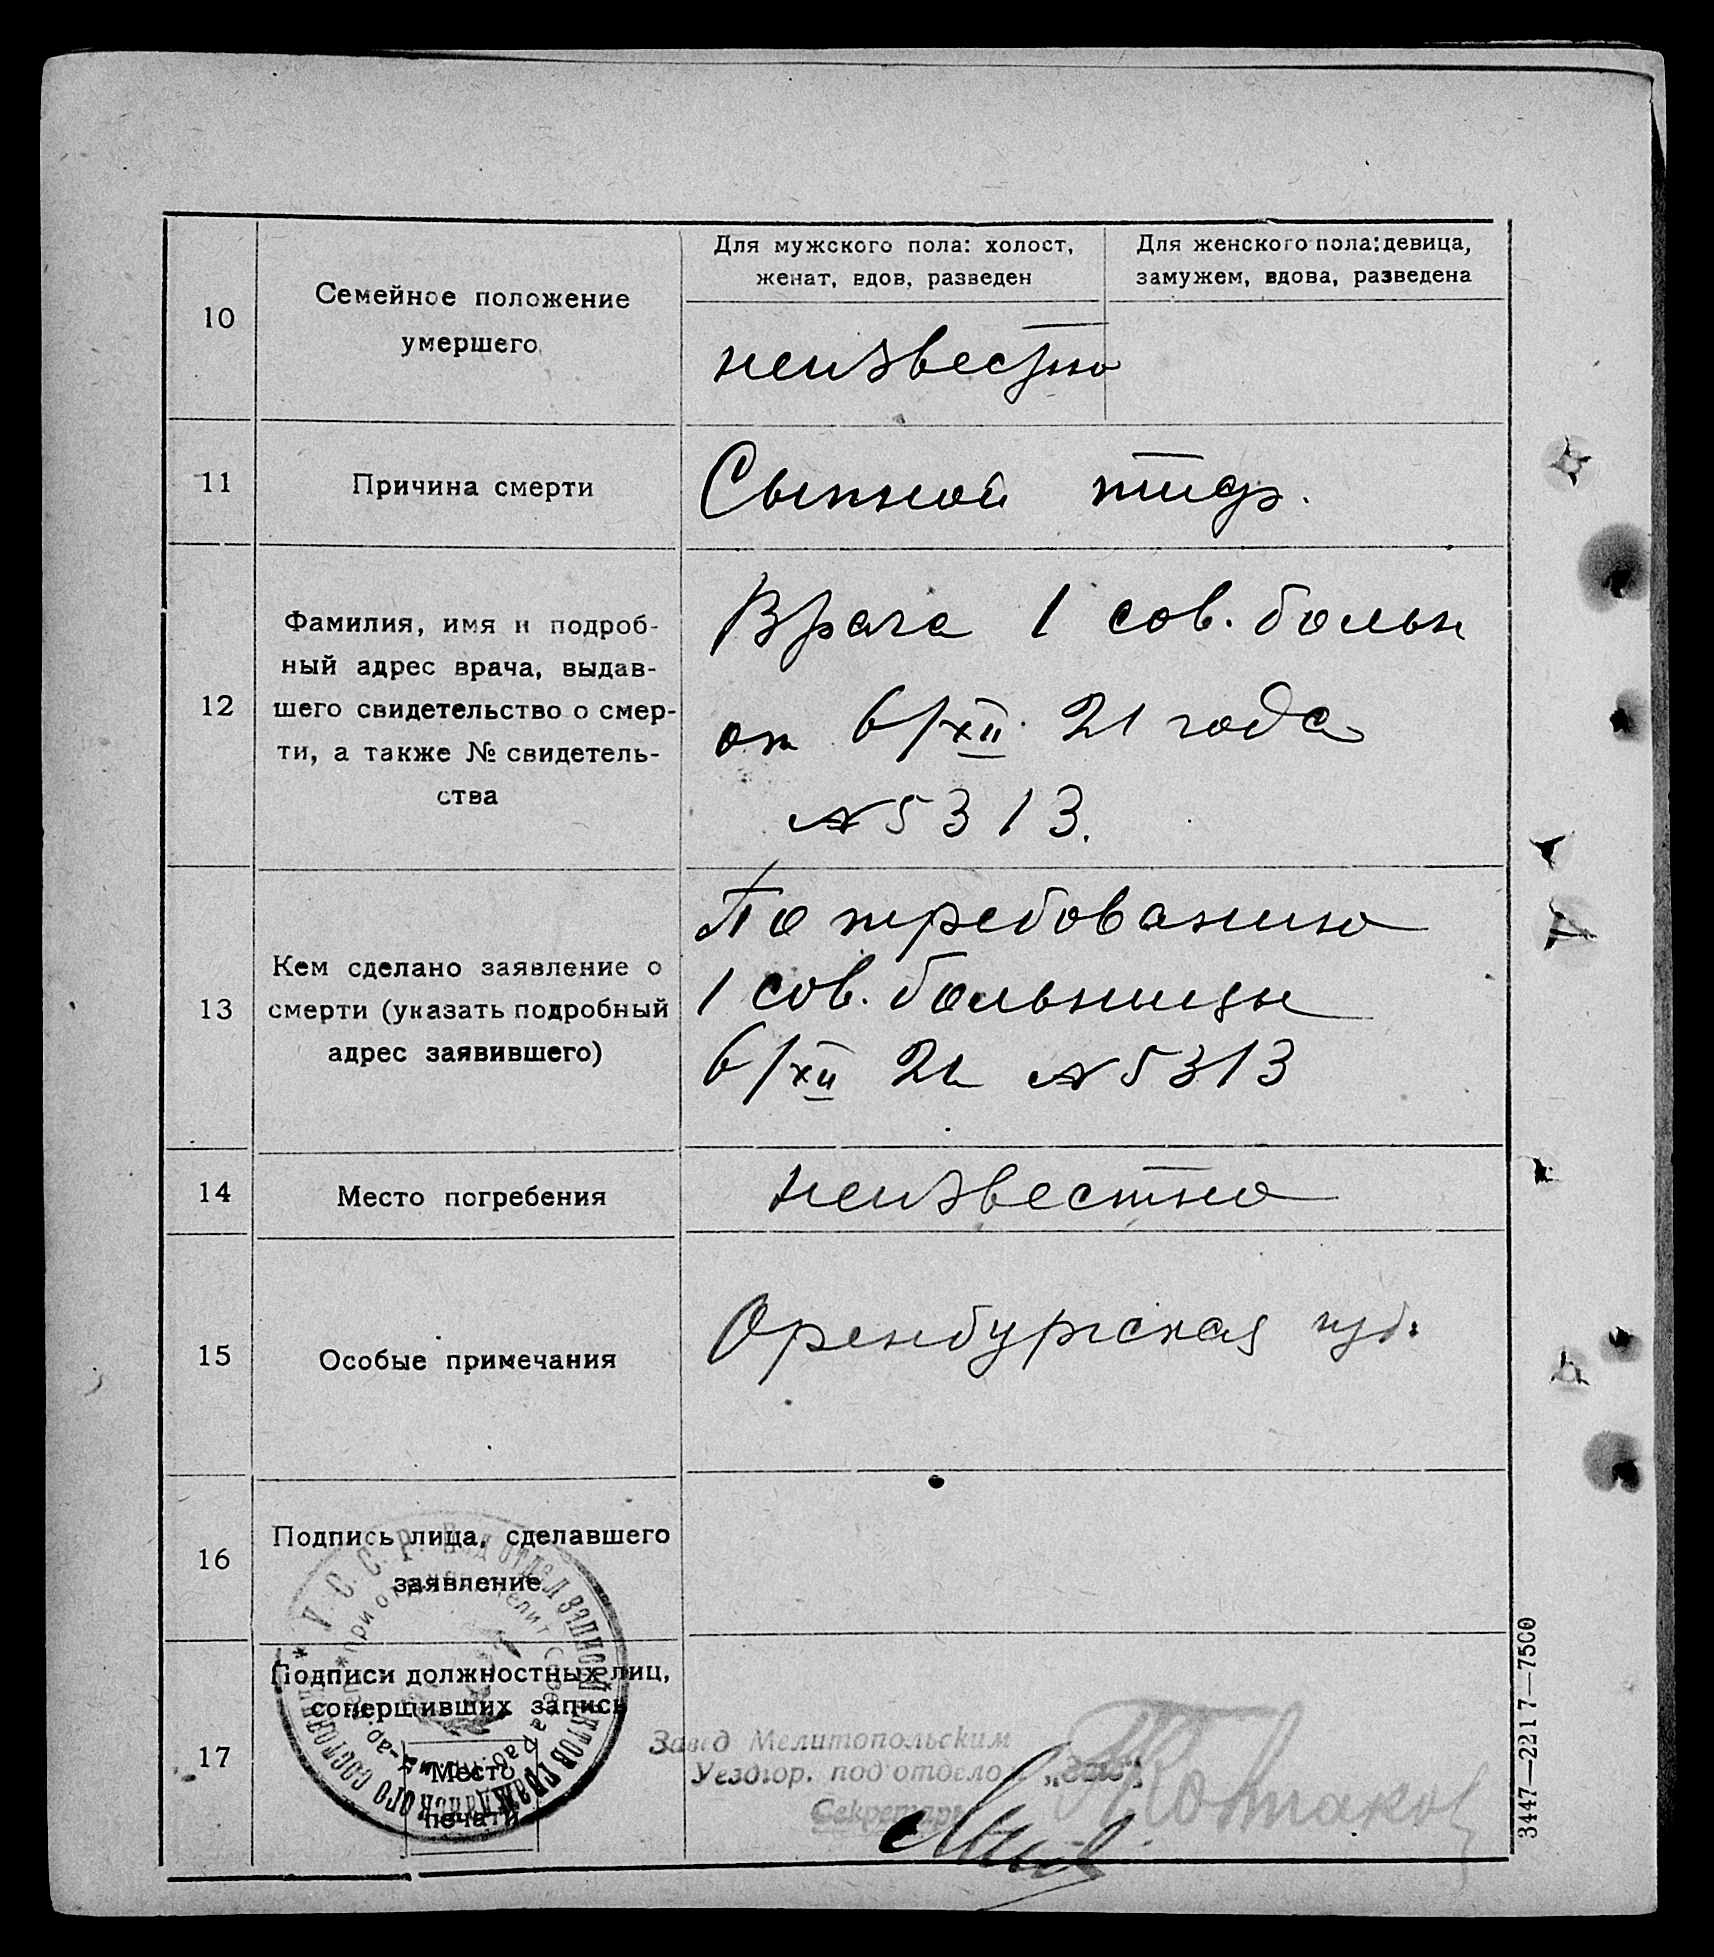 10
Семейное положение
умершего
Для мужского пола: холост,
женат, вдов, разведен
Для женского пола: девица,
замужем, вдова, разведена
неизвестно
11
Причина смерти
Сыпной тиф.
12
Фамилия, имя и подроб-
ный адрес врача, выдав-
шего свидетельство о смер-
ти, а также № свидетель-
ства
Врача 1 сов. больн
от 6/XII 21 года
№ 5313.
13
Кем сделано заявление о
смерти (указать подробный
адрес заявившего)
По требованию
1 сов. больницы
6/XII 21 № 5313
14
Место погребения
неизвестно
15
Особые примечания
Оренбургская губ.
16
Подпись лица, сделавшего
заявление
17
Подписи должностных лиц,
совершивших запись
Место
печати
У.С.С.Р. Подотдел записи актов гражданского состояния
Завед Мелитопольским
Уездгор. подотделом
Секретарь
3447—2217—7500